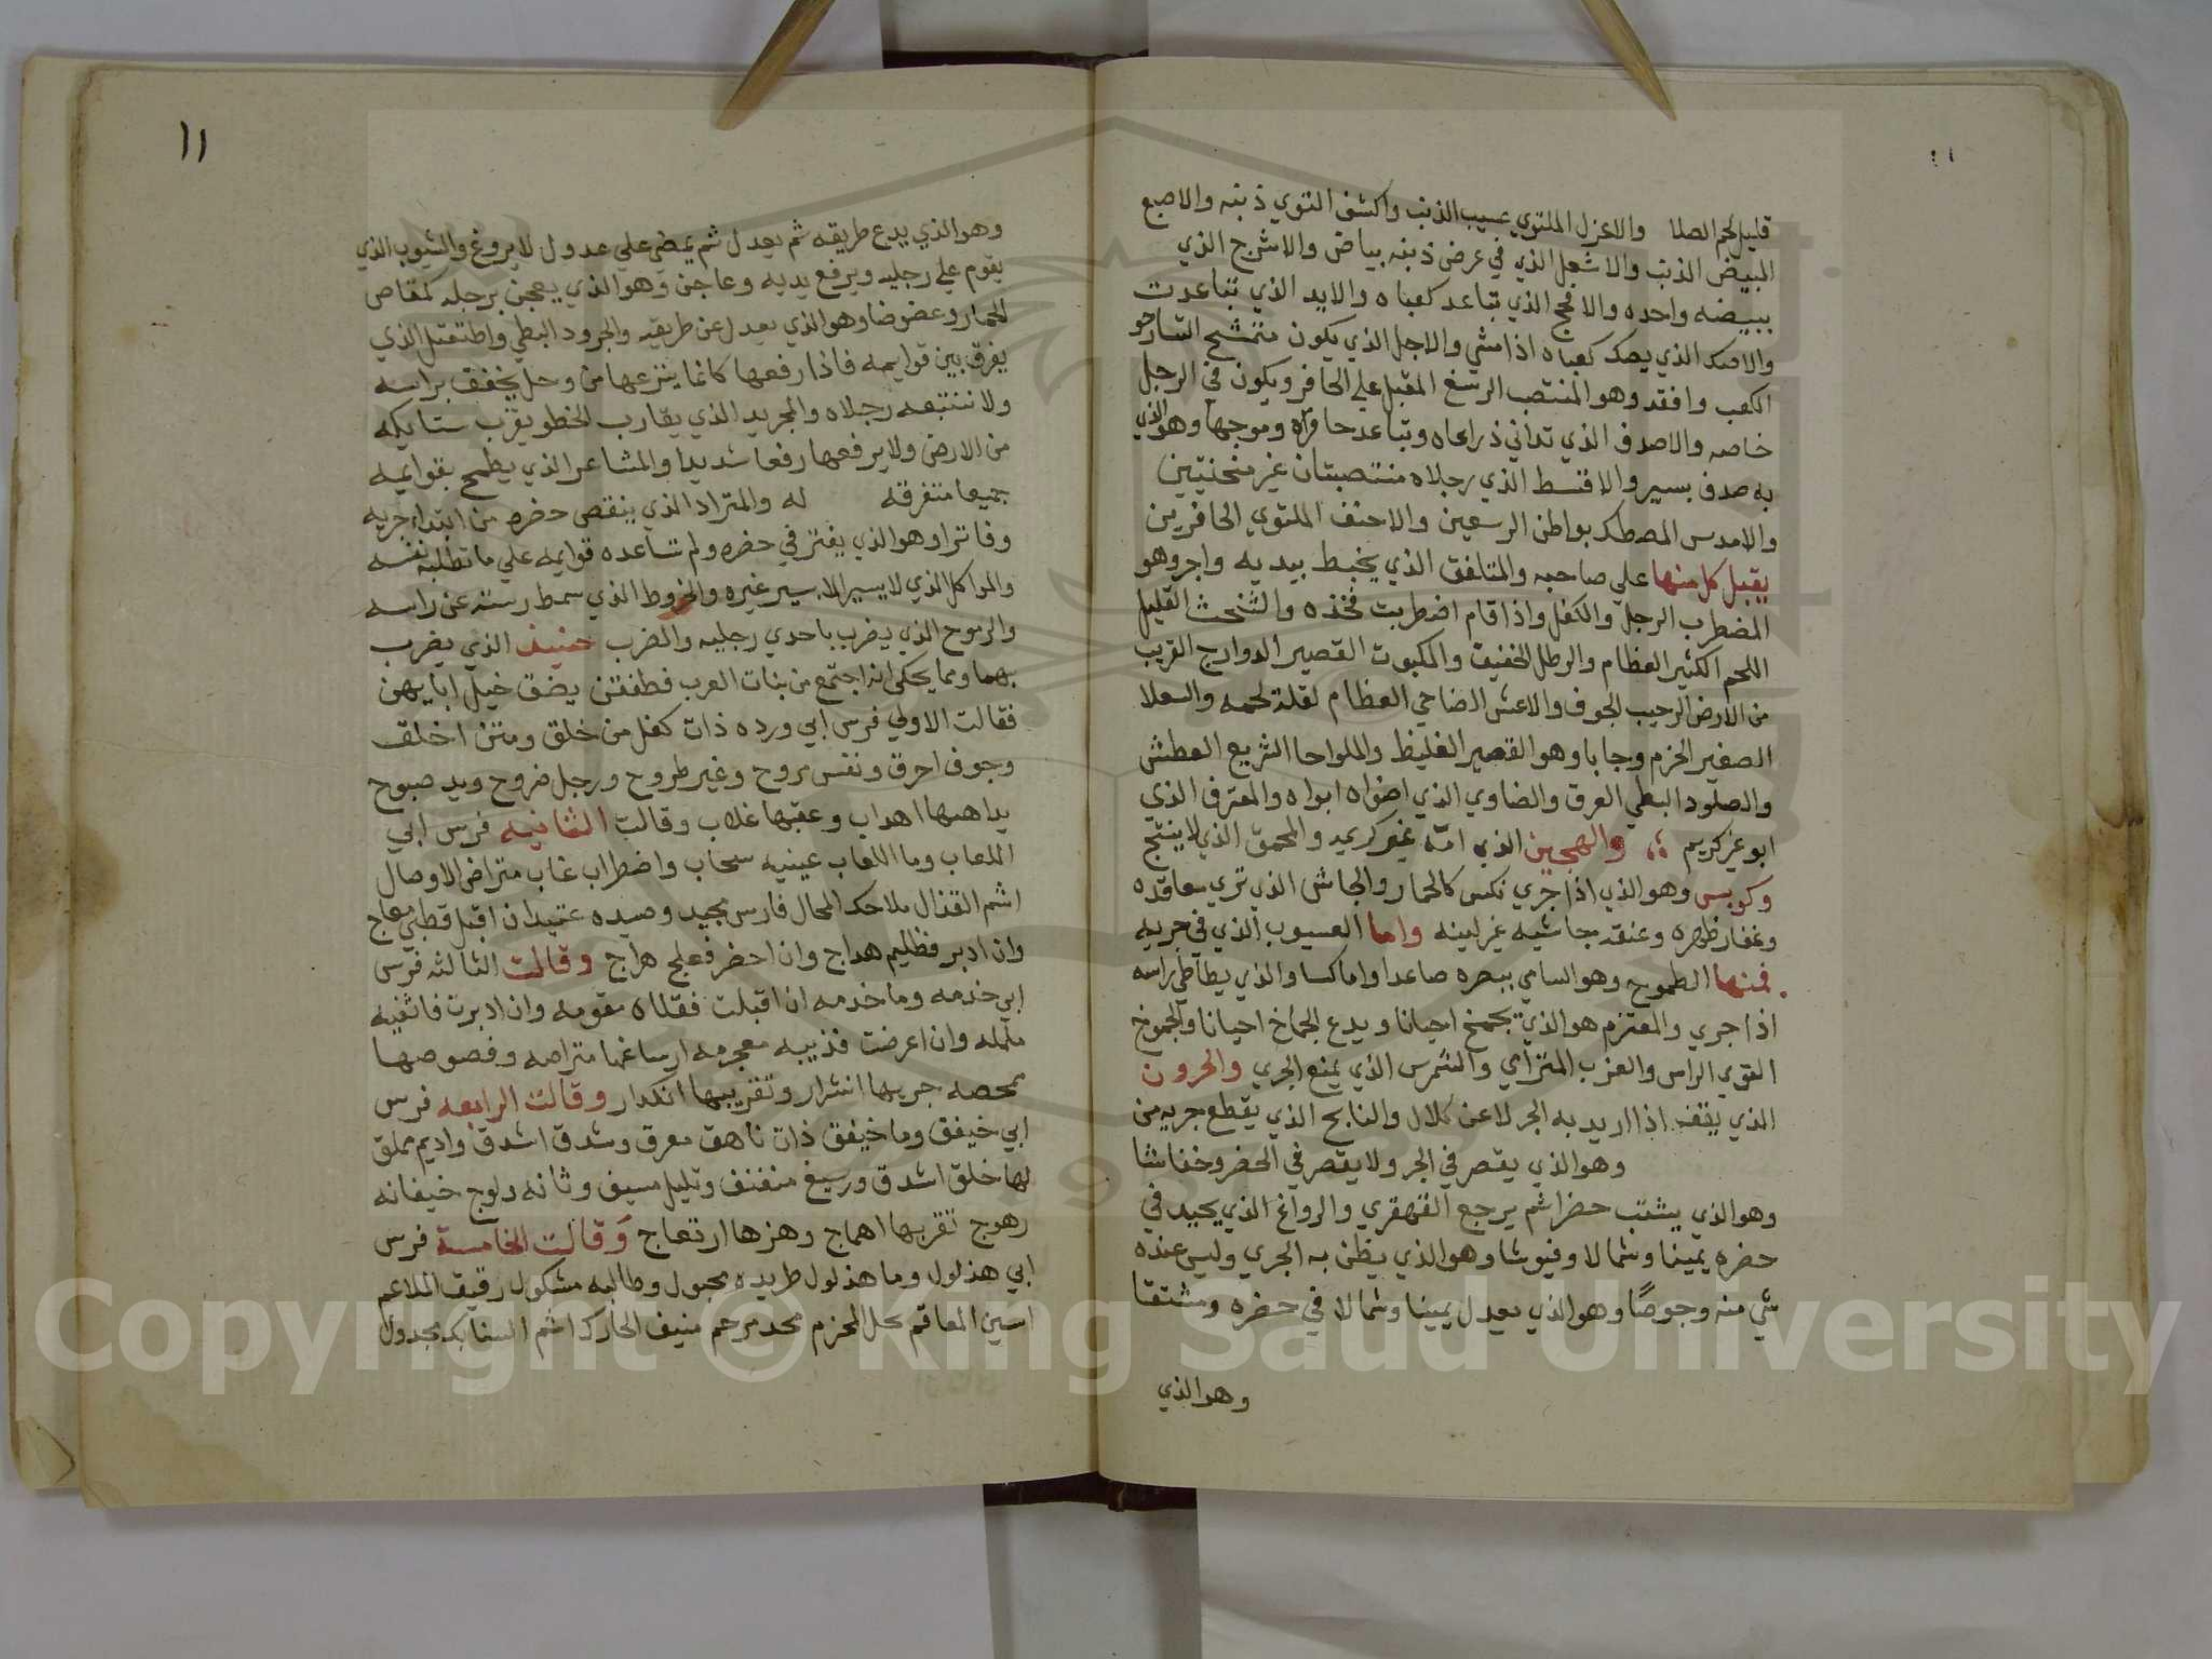 قليل لحم الصلا والاعزل الملتوي عسيب الذنب واكشف التوي ذنبه والاصبع
المبيض الذنب والاشعل الذي في عرض ذنبه بياض والاشرج الذي
ببيضه واحده والافحج الذي تباعد كعباه والابد الذي تباعدت
والاصك الذي يصك كعباه اذا مشي والاجل الذي يكون متمشح النسا رخو
الكعب وافقد وهو المنتصب الرسغ المقبل علي الحافر ويكون في الرجل
خاصه والاصدف الذي تداني ذراعاه وتباعد حافراه وموجها وهو الذي
به صدف بسير والاقسط الذي رجلاه منتصبتان غير منحنيتين
والامدس المصطك بواطن الرسعين والاحنف الملتوي الحافرين
يقبل كل منها علي صاحبه والمتلفق الذي يخبط بيديه واجر وهو
المضطرب الرجل والكفل واذا قام اضطربت فخذه والشخت القليل
اللحم الكثير العظام والرطل الخفيف والمكبوت القصير الدوارج القريب
من الارض الرحيب الجوف والاعش الضاحي العظام لقلة لحمه والسعلا
الصغير الحزم وجابا وهو القصير الغليظ والملواحا السريع العطش
والصلود البطي العرق والضاوي الذي اضواه ابواه والمقرف الذي
ابو غير كريم والهجين الذي امه غير كريمه والمحمق الذي لا ينتج
وكوبس وهو الذي اذا جري نكس كالحمار والجاشي الذي تري معاقده
وغفار ظهره وعنقه جاشيه غير لينه واما العسيوب الذي في جريه
فمنها الطموح وهو السامي ببصره صاعدا واما كسا والذي يطاطي راسه
اذا جري والمعتزم هو الذي يجمح احيانا ويدع الجماح احيانا والجموح
القوي الراس والعزب المتراي والشمرس الذي يمنع الجري والحرون
الذي يقف اذا اريد به الجر لا عن كلال والنابح الذي يقطع جريه من
وهو الذي يقصر في الجر ولا يقصر في الحضر وخفاشا
وهو الذي يشتب حضرا ثم يرجع القهقري والرواغ الذي يحيد في
حضره يمينا وشمالا وفيوشا وهو الذي يظن به الجري وليس عنده
شي منه وجوصًا وهو الذي يعدل يمينا وشمالا في حضره ومشتقا
وهو الذي
١١
وهو الذي يدع طريقه ثم يعدل ثم يمضي علي عدول لا يروغ والشبوب الذي
يقوم علي رجليه ويرفع يديه وعاجن وهو الذي يعجن برجله كمقاص
الحمار وعضوضا وهو الذي يعدل عن طريقه والجرود البطي واطتقتل الذي
يفرق بين قوايمه فاذا رفعها كانما ينتزعها من وحل يخفق براسه
ولا تتبعه رجلاه والمجريد الذي يقارب الخطو يقرب سنابكه
من الارض ولا يرفعها رفعا شديدا والمشاعر الذي يطمح بقوايمه
جميعا متفرقه له والمتراد الذي ينقص حضره من ابتداء جريه
وفاترا وهو الذي يفتر في حضره ولم تساعده قوايمه علي ما تطلبه نفسه
والمواكل الذي لا يسير الا بسير غيره والخروط الذي سمط رسنه عن راسه
والرموح الذي يضرب باحدي رجليه والضرب خنيف الذي يضرب
بهما ومما يحكي انه اجتمع من بنات العرب فطفقن يصفن خيل ابايهن
فقالت الاولي فرس ابي ورده ذات كفل من خلق ومتن اخلق
وجوف احرق ونفس مروح وعير طروح ورجل ضروح ويد صبوح
بداهتها اهداب وعقبها غلاب وقالت الثانيه فرس ابي
اللعاب وما اللعاب عينيه سحاب واضطراب غاب متراض الاوصال
اشم القذال ملاحك المحال فارس مجيد وصيده عتيد ان اقبل فظبي معاج
وان ادبر فظليم هداج وان احضر فعلج هراج وقالت الثالثه فرس
ابي حذمه وما خذمه ان اقبلت فقناه مقومه وان ادبرت فاثفيه
ململه وان اعرضت فذيبه معجرمه ارساغها متراصه وفصوصها
ممحصه جريها انثرار وتقريبها انكدار وقالت الرابعه فرس
ابي خيفق وما خيفق ذات ناهق معرق وشدق اشدق واديم مملق
لها خلق اشدق ورسيغ منفنف وتليل مسيف وثانه دلوج خيفانه
رهوج تقربها اهماج وهزها ارتعاج وقالت الخامسة فرس
ابي هذلول وما هذلول طريده محبول وطالبه مشكول رقيق الملاغم
امين المعاقم محل المحزم محد مرحم منيف الحارك اشم السنابك مجدول
Copyright © King Saud University